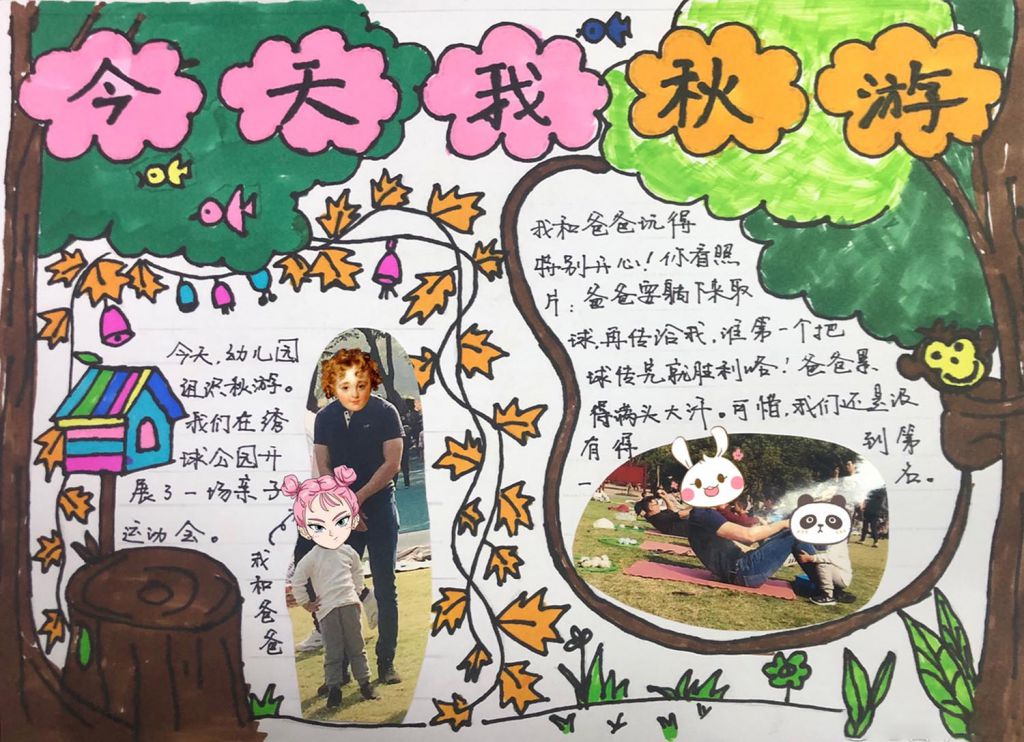 今天我秋游
今天,幼儿园
组织秋游。
我们在绣
球公园开
展了一场亲子
运动会。
我和爸爸
我和爸爸玩得
特别开心!你看照
片:爸爸要躺下来取
球,再传给我,谁第一个把
球传完就胜利咯!爸爸累
得满头大汗。可惜,我们还是没
有得到第
一名。